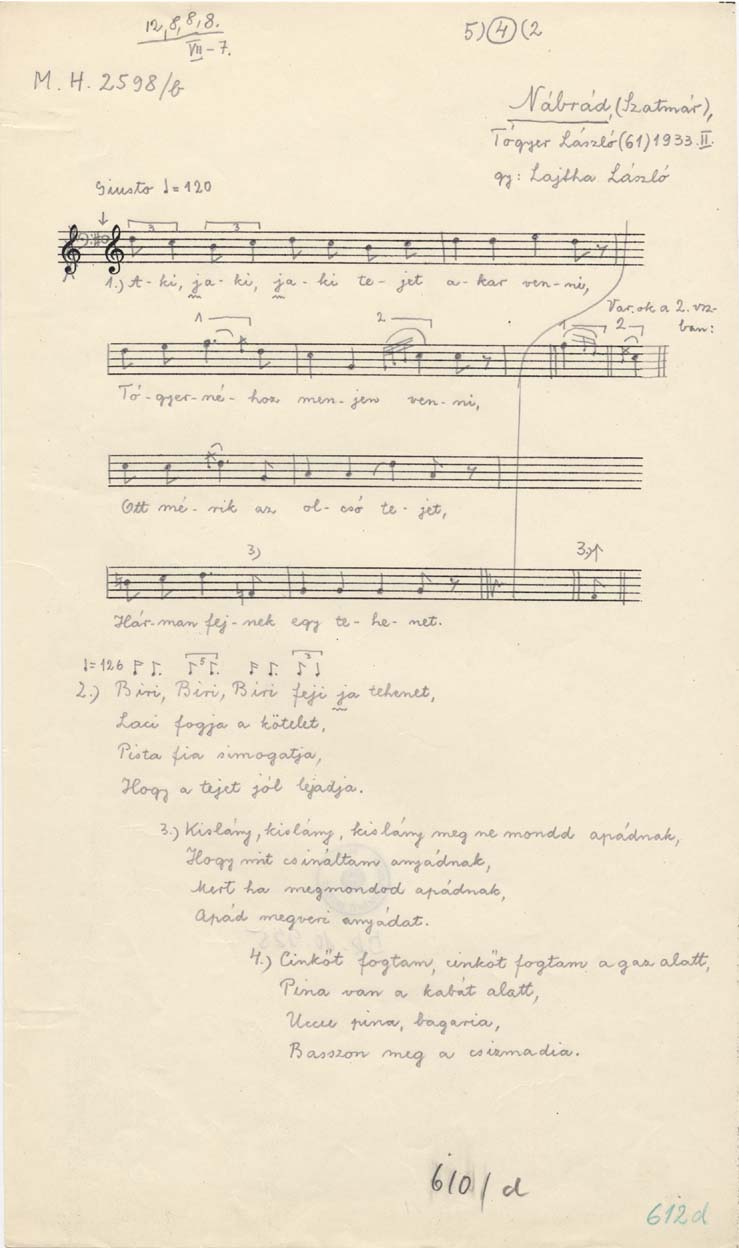 12, 8, 8, 8.
VII - 7.
5) 4 (2
M. H. 2598/b
Nábrád, (Szatmár),
Tógyer László (61) 1933. II.
gy: Lajtha László
Giusto ♩ = 120
3 3
1.) A - ki, ja - ki, ja - ki te - jet a - kar ven - ni,
Var. ok a 2. vsz-
ban:
1 2 1 2
Tó - gyer - né - hoz men - jen ven - ni,
Ott mé - rik az ol - csó te - jet,
3) 3)
Hár - man fej - nek egy te - he - net.
♩ = 126 5 3
2.) Biri, Biri, Biri feji ja tehenet,
Laci fogja a kötelet,
Pista fia simogatja,
Hogy a tejet jól lejadja.
3.) Kislány, kislány, kislány meg ne mondd apádnak,
Hogy mit csináltam anyádnak,
Mert ha megmondod apádnak,
Apád megveri anyádat.
4.) Cinkőt fogtam, cinkőt fogtam a gaz alatt,
Pina van a kabát alatt,
Uccu pina, bagaria,
Basszon meg a csizmadia.
610/d
612d